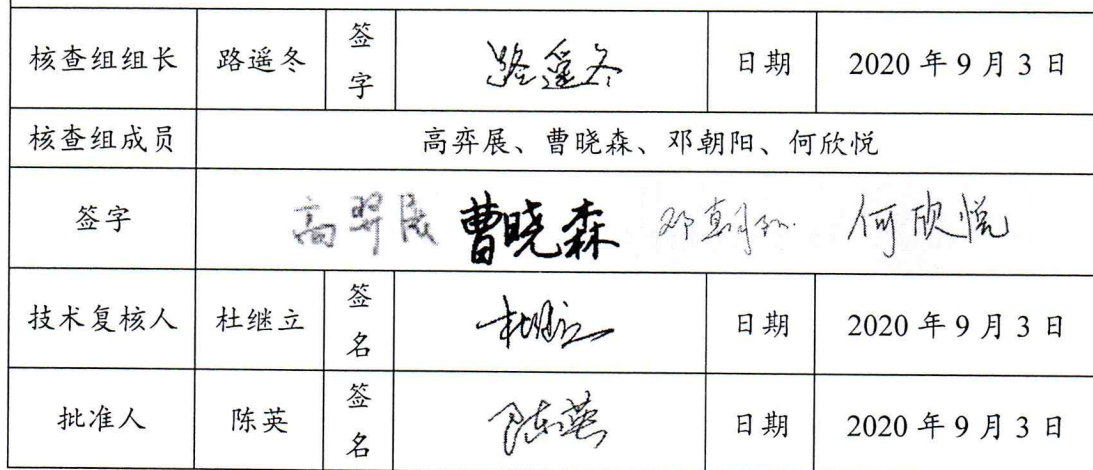 核查组组长 路遥冬 签字 路遥冬 日期 2020年9月3日
核查组成员 高弈展、曹晓森、邓朝阳、何欣悦
签字 高羿展 曹晓森 邓朝阳 何欣悦
技术复核人 杜继立 签名 杜继立 日期 2020年9月3日
批准人 陈英 签名 陈英 日期 2020年9月3日